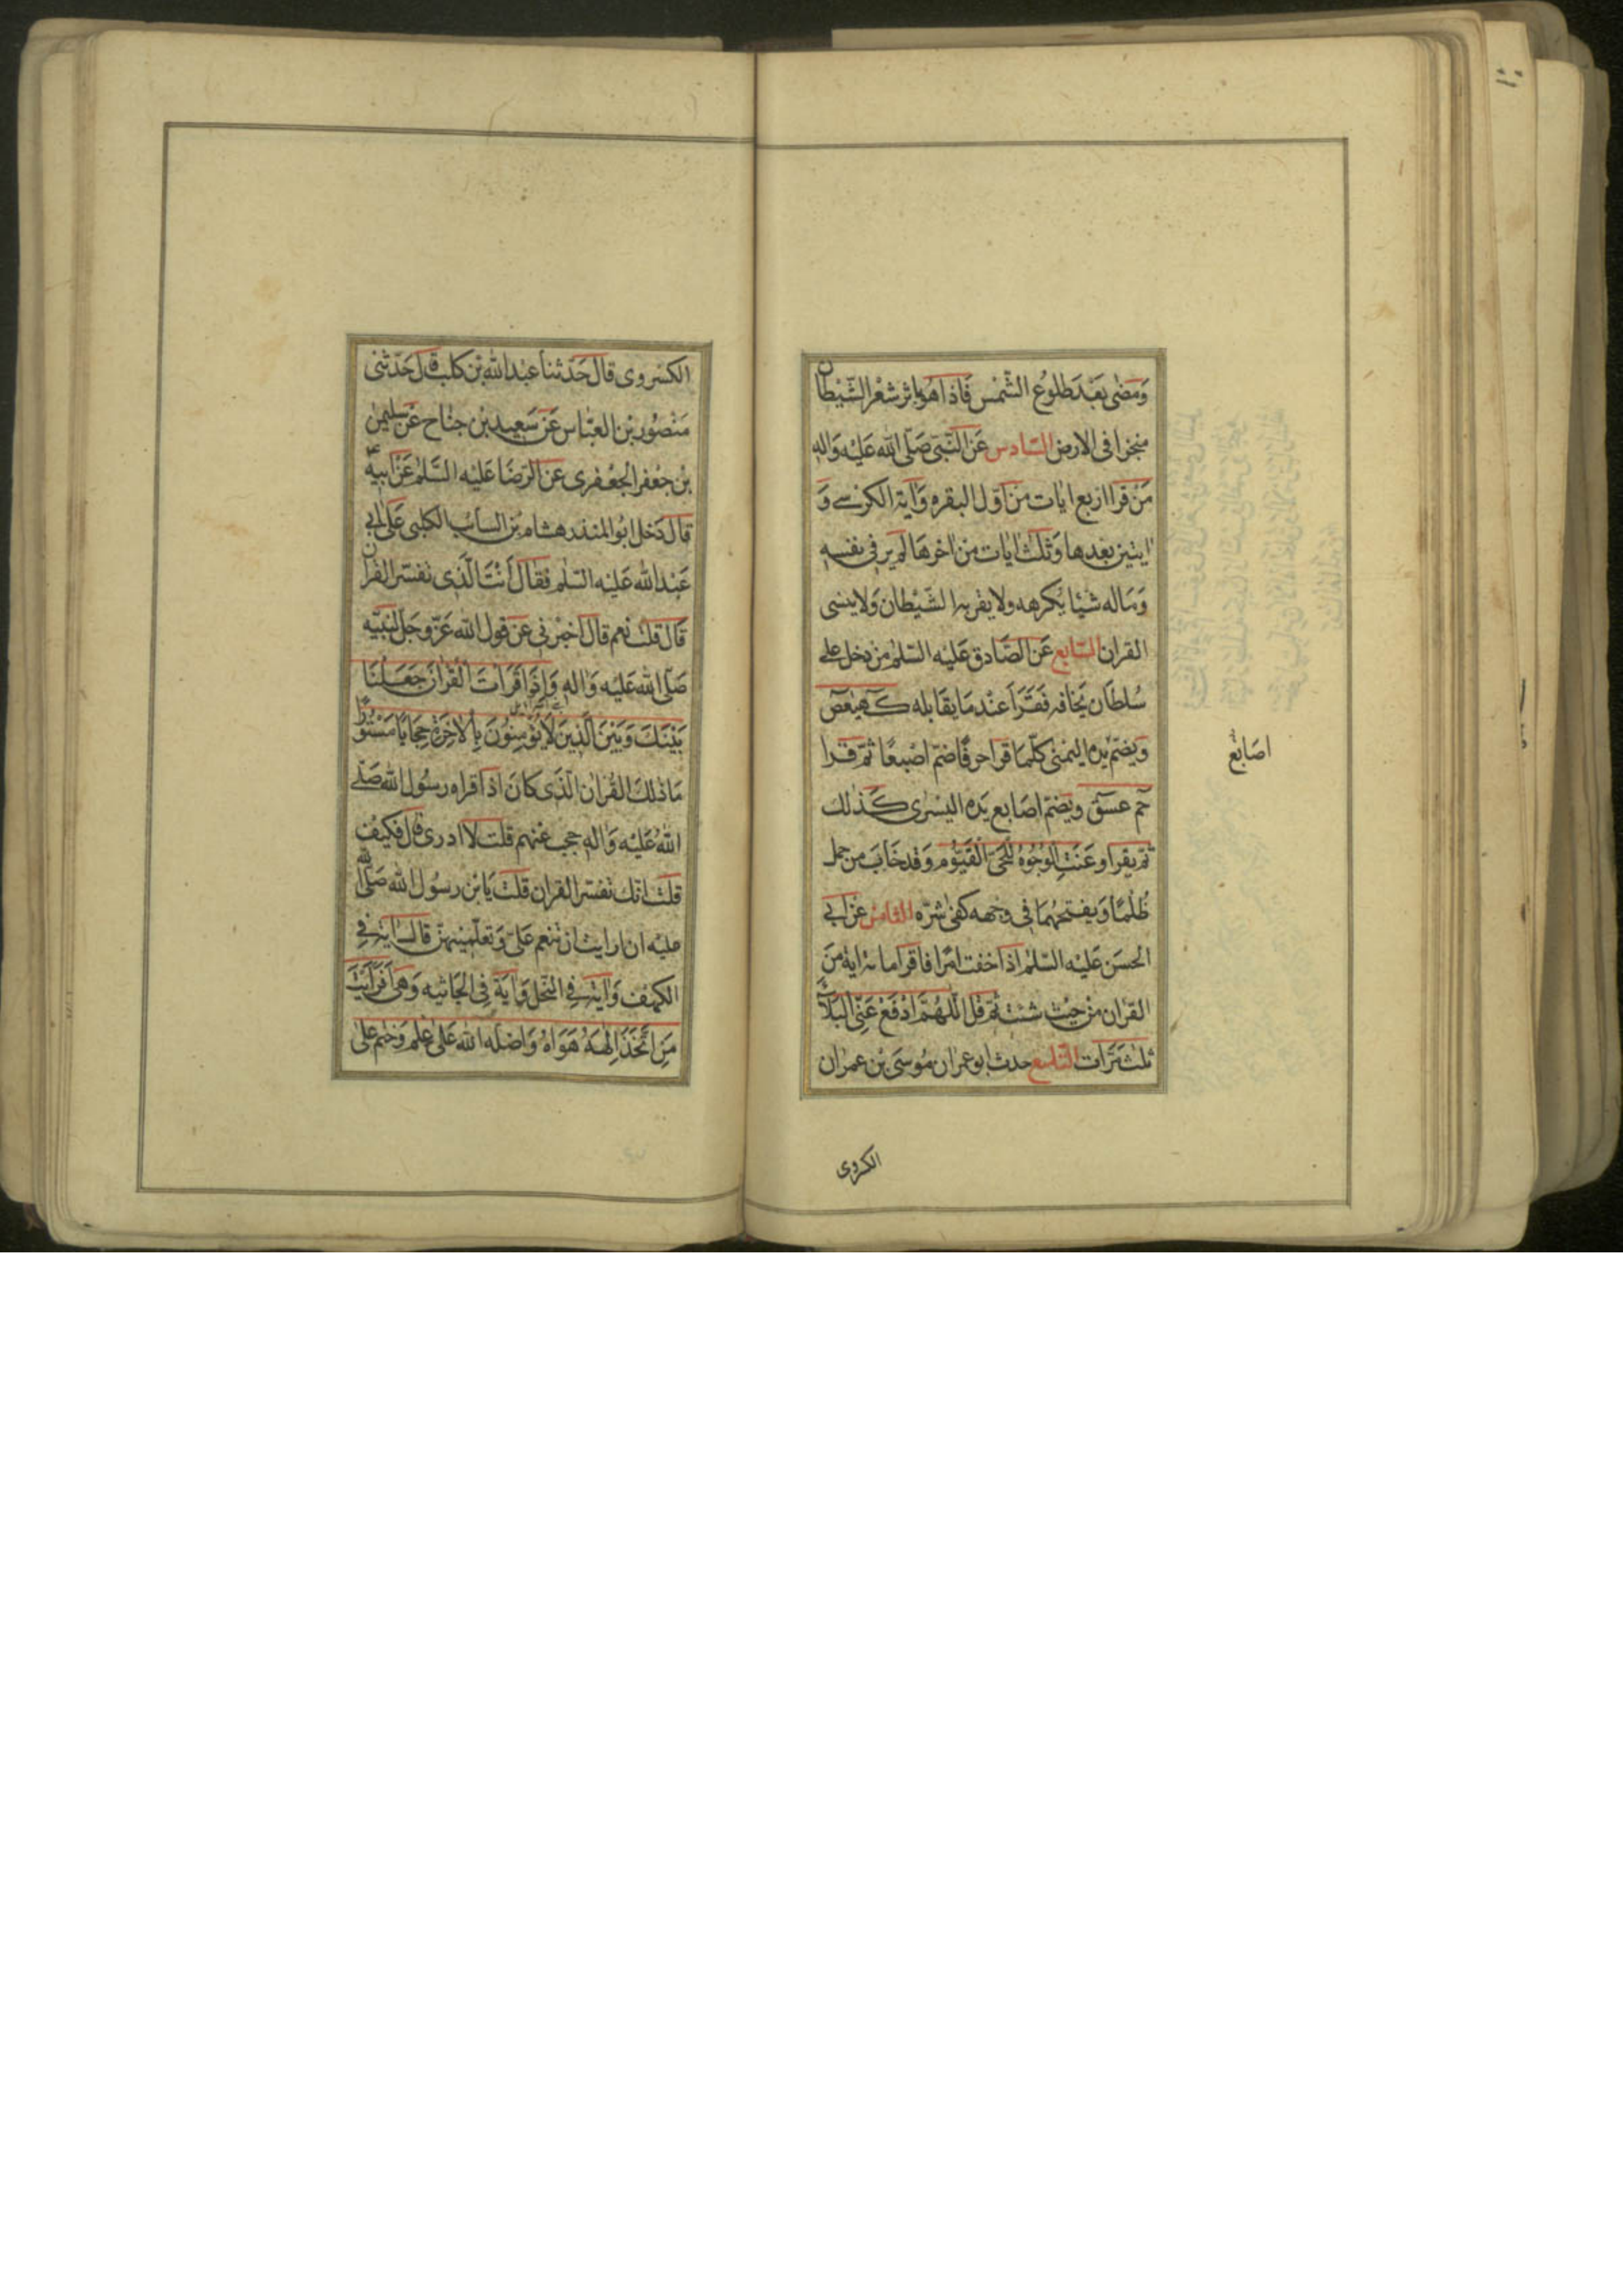 وَمَضٰى بَعْدَ طلوُع الشَّمْس فَاذا هُو باثر شعْر الشَّيْطان
منجرا فى الارض السّادس عَن النّبَىّ صَلّى الله عَليْه وَاله
مَنْ قرا اربع ايات من اوّل البقره وَآية الكرسے وَ
ايتين بعدها وَثلث ايات من اخرهَا لم ير فى نفسه
وَماله شيْئا يكرهه ولا يقربه الشّيْطان وَلا ينسى
القران السّابع عَن الصّادق عَليْه السّلم من دخل على
سُلطان يَخافه فَقَرَأ عنْد مَا يقابله كٓهٰيٰعٓصٓ
ويضمّ يده اليمْنى كلّما قرا حرفًا ضمّ اصْبعًا ثمّ قرا
حٓمٓ عٓسٓقٓ ويضمّ اصَابع يَده اليسْرى كَذلك
ثمّ يقرا وعَنَتِ الوُجُوهُ لِلْحَىِّ الْقَيّوُم وَقدخَابَ من حمل
ظُلْمًا وَيفتحهُمَا فى وجْهه كفىٰ شرّه الثّامن عَن ابى
الحسَن عَليْه السّلم اذا خفت امْرا فاقرا مائة اية منَ
القرْان منْ حيْث شئت ثمّ قل اَللّهُمَّ ادْفَعْ عَنِّى الْبَلآءَ
ثلث مَرَّات التّاسع حدث ابو عمران مُوسَى بْن عمرْان
اصَابعَ
الكروى
الكسْروى قال حَدّثنا عبْد الله بْن كلب قال حَدّثنى
مَنْصُور بْن العبّاس عَنْ سَعيد بْن جنَاح عَن سليمٰن
بْن جعْفر الجعْفرى عن الرّضَا عَليْه السَّلم عَنْ ابيهٖ
قال دَخل ابوُ المنذر هشام بْن السائب الكلبى عَلى ابى
عَبْد الله عَليْه السّلم فقال أَنْتَ الّذى تفسّر القران
قَال قلت نعم قال اخبرْنى عَنْ قول الله عَزّوجَلّ لنبيّه
صَلّى الله عَليْه وَاله وَاِذَا قَرَاْتَ الْقُرْانَ جَعَلْنَا
بَيْنَكَ وَبَيْنَ الَّذينَ لَا يُؤْمِنُونَ بِالْاخِرَةِ حِجَابًا مَسْتُورًا
مَا ذلكَ القُرْان الّذى كانَ اذا قراه رسُول الله صَلّى
اللّهُ عَليْه وَاله حجب عنْهم قلت لا ادرى قال فكيف
قلت انّك تفسّر القران قلت يَابْن رسُول الله صَلّى الله
عليْه ان رايت ان تنعم عَلىّ وَتعلّمنيهنّ قال اية فى
الكهْف وَاية فى النّحل وَاية فى الجَاثيه وَهىَ اَفَرَاَيْتَ
مَنِ اتَّخَذَ اِلٰهَهُ هَوَاهُ وَاضلّه الله عَلى عْلم وَختم على